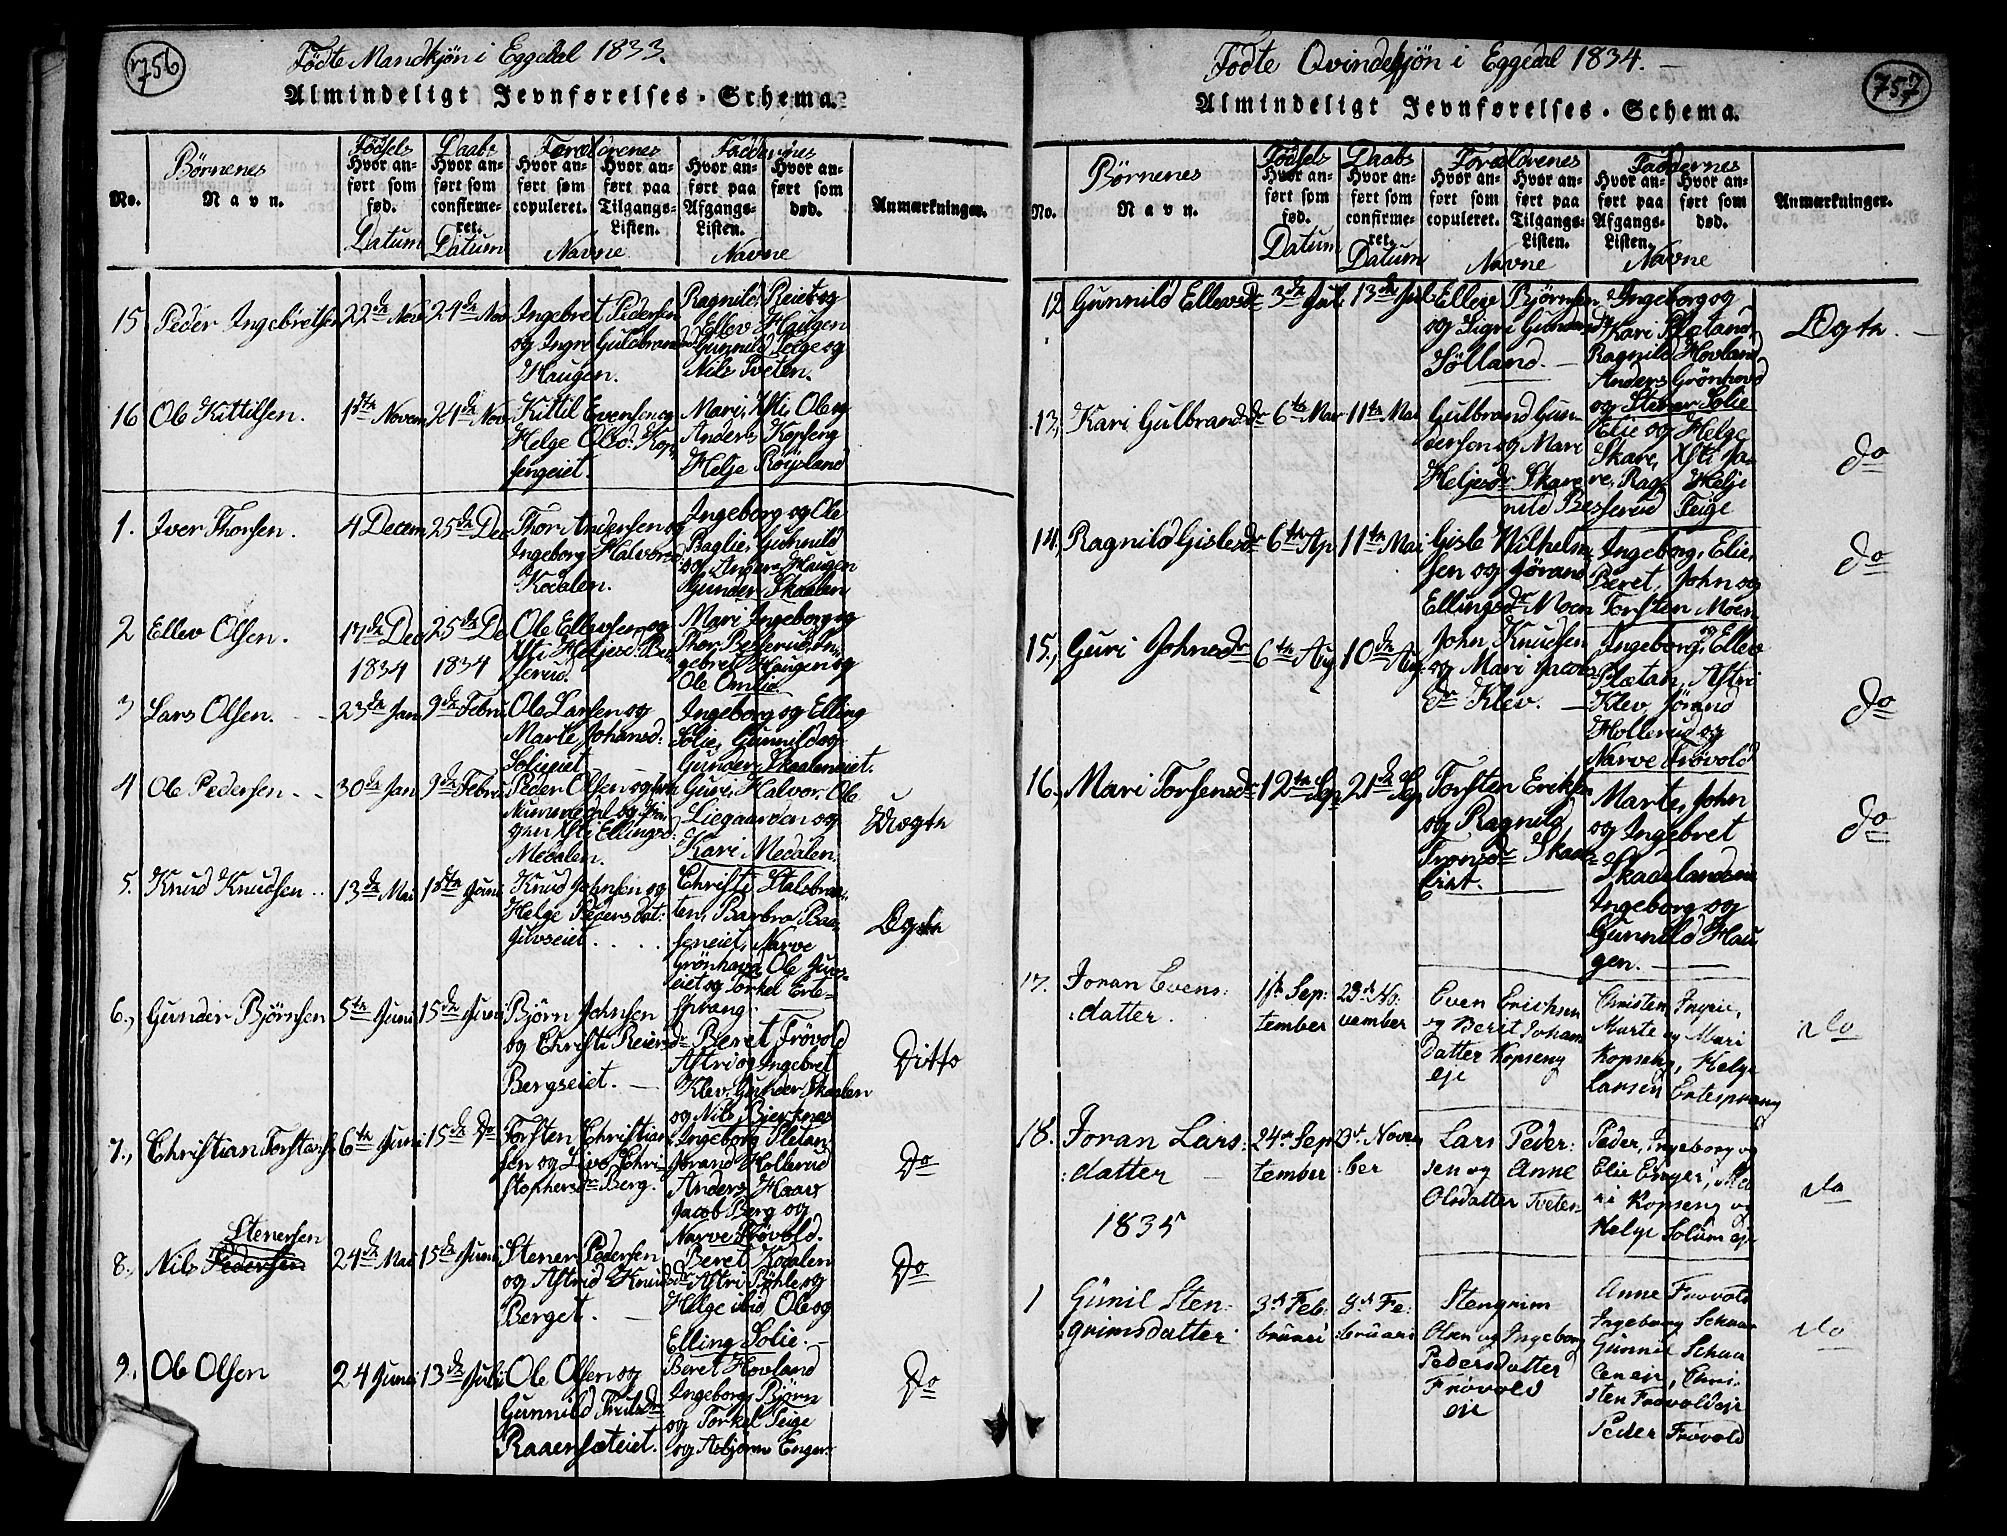 756
Fødte Mandkjøn i Eggedal 1833.
Almindeligt Jevnførelses-Schema.
No.
Børnenes
Navn.
Fødsels
Hvor an-
ført som
fød.
Datum
Daabs
Hvor an-
ført som
confirme-
ret.
Datum
Forældrenes
Hvor an-
ført som
copuleret.
Hvor an-
ført paa
Tilgangs-
Listen.
Navne
Faddernes
Hvor an-
ført paa
Afgangs-
Listen.
Hvor an-
ført som
død.
Navne
Anmærkninger.
15 Peder Ingebretsen 22de Nov 24de Nov
Ingebret Pedersen
og Ingri Guldbrands
Haugen.
Ragnild, Reier og
Ellev Haugen
Gunnild Lœge og
Nils Tveten.
16 Ole Kittilsen. 1ste Novem 24de Nov
Kittil Evensen og
Helge Olsd. Kop-
sengeiet.
Mari, Xsti, Ole og
Anders Kopseng
Helje Røysland
1. Iver Thorsen. 4 Decem 25de Dec
Thor Andersen og
Ingeborg Halvorsd
Kodalen.
Ingeborg og Ole
Baglie, Gunnild
og Anders Haugen
Gunder Skaalen
2 Ellev Olsen. 17de Dec 25de De
Ole Ellevsen og
Xsti Heljesd. Bes-
serud.
Mari Ingeborg og
Thor Besserud, In-
gebret Haugen og
Ole Omlid.
1834 1834
3 Lars Olsen. 23de Jan 9de Febru
Ole Larsen og
Marte Johansd:
Solieeiet
Ingeborg og Elling
Solie, Gunnild og
Gunder Skaaleneiet.
4 Ole Pedersen 30de Jan 9de Febru
Peder Olsen og fra
Nummedal og Pi-
gen Xsti Ellingsd:
Medalen.
Guri, Halvor, Ole
Liegaarden og
Kari Medalen.
Uægte
5. Knud Knudsen 13de Mai 1ste Juni
Knud Johnsen og
Helge Pedersdat:
Juvseiet
Christi Stalsbraa-
ten, Barbro Baa-
seneiet, Narve
Grønhovd, Ole Juvs-
eiet og Torkel Erte-
sprang.
Ægte
6., Gunder Bjørnsen 5te Juni 15de Juni
Bjørn Johnsen
og Christi Reiersdr
Bergseiet.
Beret Frøvold
Astri og Ingebret
Klev, Gunder Skaalen
og Nils Bjerknes
Ditto
7., Christian Torstens 6te Juni 15de Do
Torsten Christian-
sen og Live Chri-
stophersdr Berg.
Ingeborg Plœtan
Jørand Hollerud
Anders Haav
Jacob Berg og
Narve Frøvold.
Do
8., Nils Pedersen Stenersen 24de Mai 15de Juni
Stener Pedersen
og Astrid Knudsdr
Berget.
Beret Kodalen
Astri Bøhle, og
Helge ibid, Ole og
Elling Solie.
Do
9., Ole Olsen 24 Juni 13de Juli
Ole Olsen og
Gunnild Truls dr
Raaensœteiet.
Beret Hovland
Ingeborg, Bjørn
og Torkel Teige
og Asbjørn Enger.
Do
757
Fødte Qvindekjøn i Eggedal 1834.
Almindeligt Jevnførelses-Schema.
No.
Børnenes
Navn.
Fødsels
Hvor an-
ført som
fød.
Datum
Daabs
Hvor an-
ført som
confirme-
ret.
Datum
Forældrenes
Hvor an-
ført som
copuleret.
Hvor an-
ført paa
Tilgangs-
Listen.
Navne
Faddernes
Hvor an-
ført paa
Afgangs-
Listen.
Hvor an-
ført som
død.
Navne
Anmærkninger.
12 Gunnild Ellevsdr 3de Juli 13de Juli
Ellev Bjørnsen
og Sigri Gundersdr
Sølland.
Ingeborg og
Kari Plœtand,
Ragnild Hovland
Anders Grønhovd
og Stener Solie
Ægte
13., Kari Gulbrandsdr 6te Mar 11te Mai
Gulbrand Gun-
dersen og Mari
Heljesdr Skare
Elie og Helge
Skare, Xsti Ja-
re, Rag- Helje
nild Besserud Teige
do
14., Ragnild Gislesdr 6te Ap. 11te Mai
Gisle Wilhelm-
sen og Jørand
Ellingsdr Moen
Ingeborg, Elie,
Beret, John og
Torsten Moen
do
15., Guri Johnsdr 6te Aug 10de Aug.
John Knudsen
og Mari Jacobs
dr Klev.
Ingeborg og Ellev
Plœtan, Astri
Klev, Jørand
Hollerud og
Narve Frøvold
do
16., Mari Torstensdr 12te Sep 21de Sep
Torsten Eriksen
og Ragnild
Tronsdr Skade-
Eiet.
Marte, John
og Ingebret
Skadelandeie
Ingeborg og
Gunnild Hau
gen.
do
17. Joran Evens:
datter.
1ste Sep:
tember
23de No:
vember
Even Erichsen
og Berit Johans
datter Kopseng
eje
Christen, Ingrie,
Marte og Mari
Kopseng, Helge
Larsen Ertesprang
do
18. Joran Lars:
datter
24de Sep
tember
3de Novem
:ber
Lars Peder:
sen og Anne
Olsdatter Tveten
Peder, Ingeborg og
Elie Enger, Ma
ri Kopseng og
Helge Solumeje
do
1835
1 Günil Sten:
grimsdatter
3de Feb:
bruari
8de Fe:
bruari
Stengrim
Olsen og Ingeborg
Pedersdatter
Frøvold
eje
Anne Frøvold
Ingeborg Schaa
Gunnil Schaa
leneje, Chri-
sten Frøvoldeje
Peder Frøvold
do